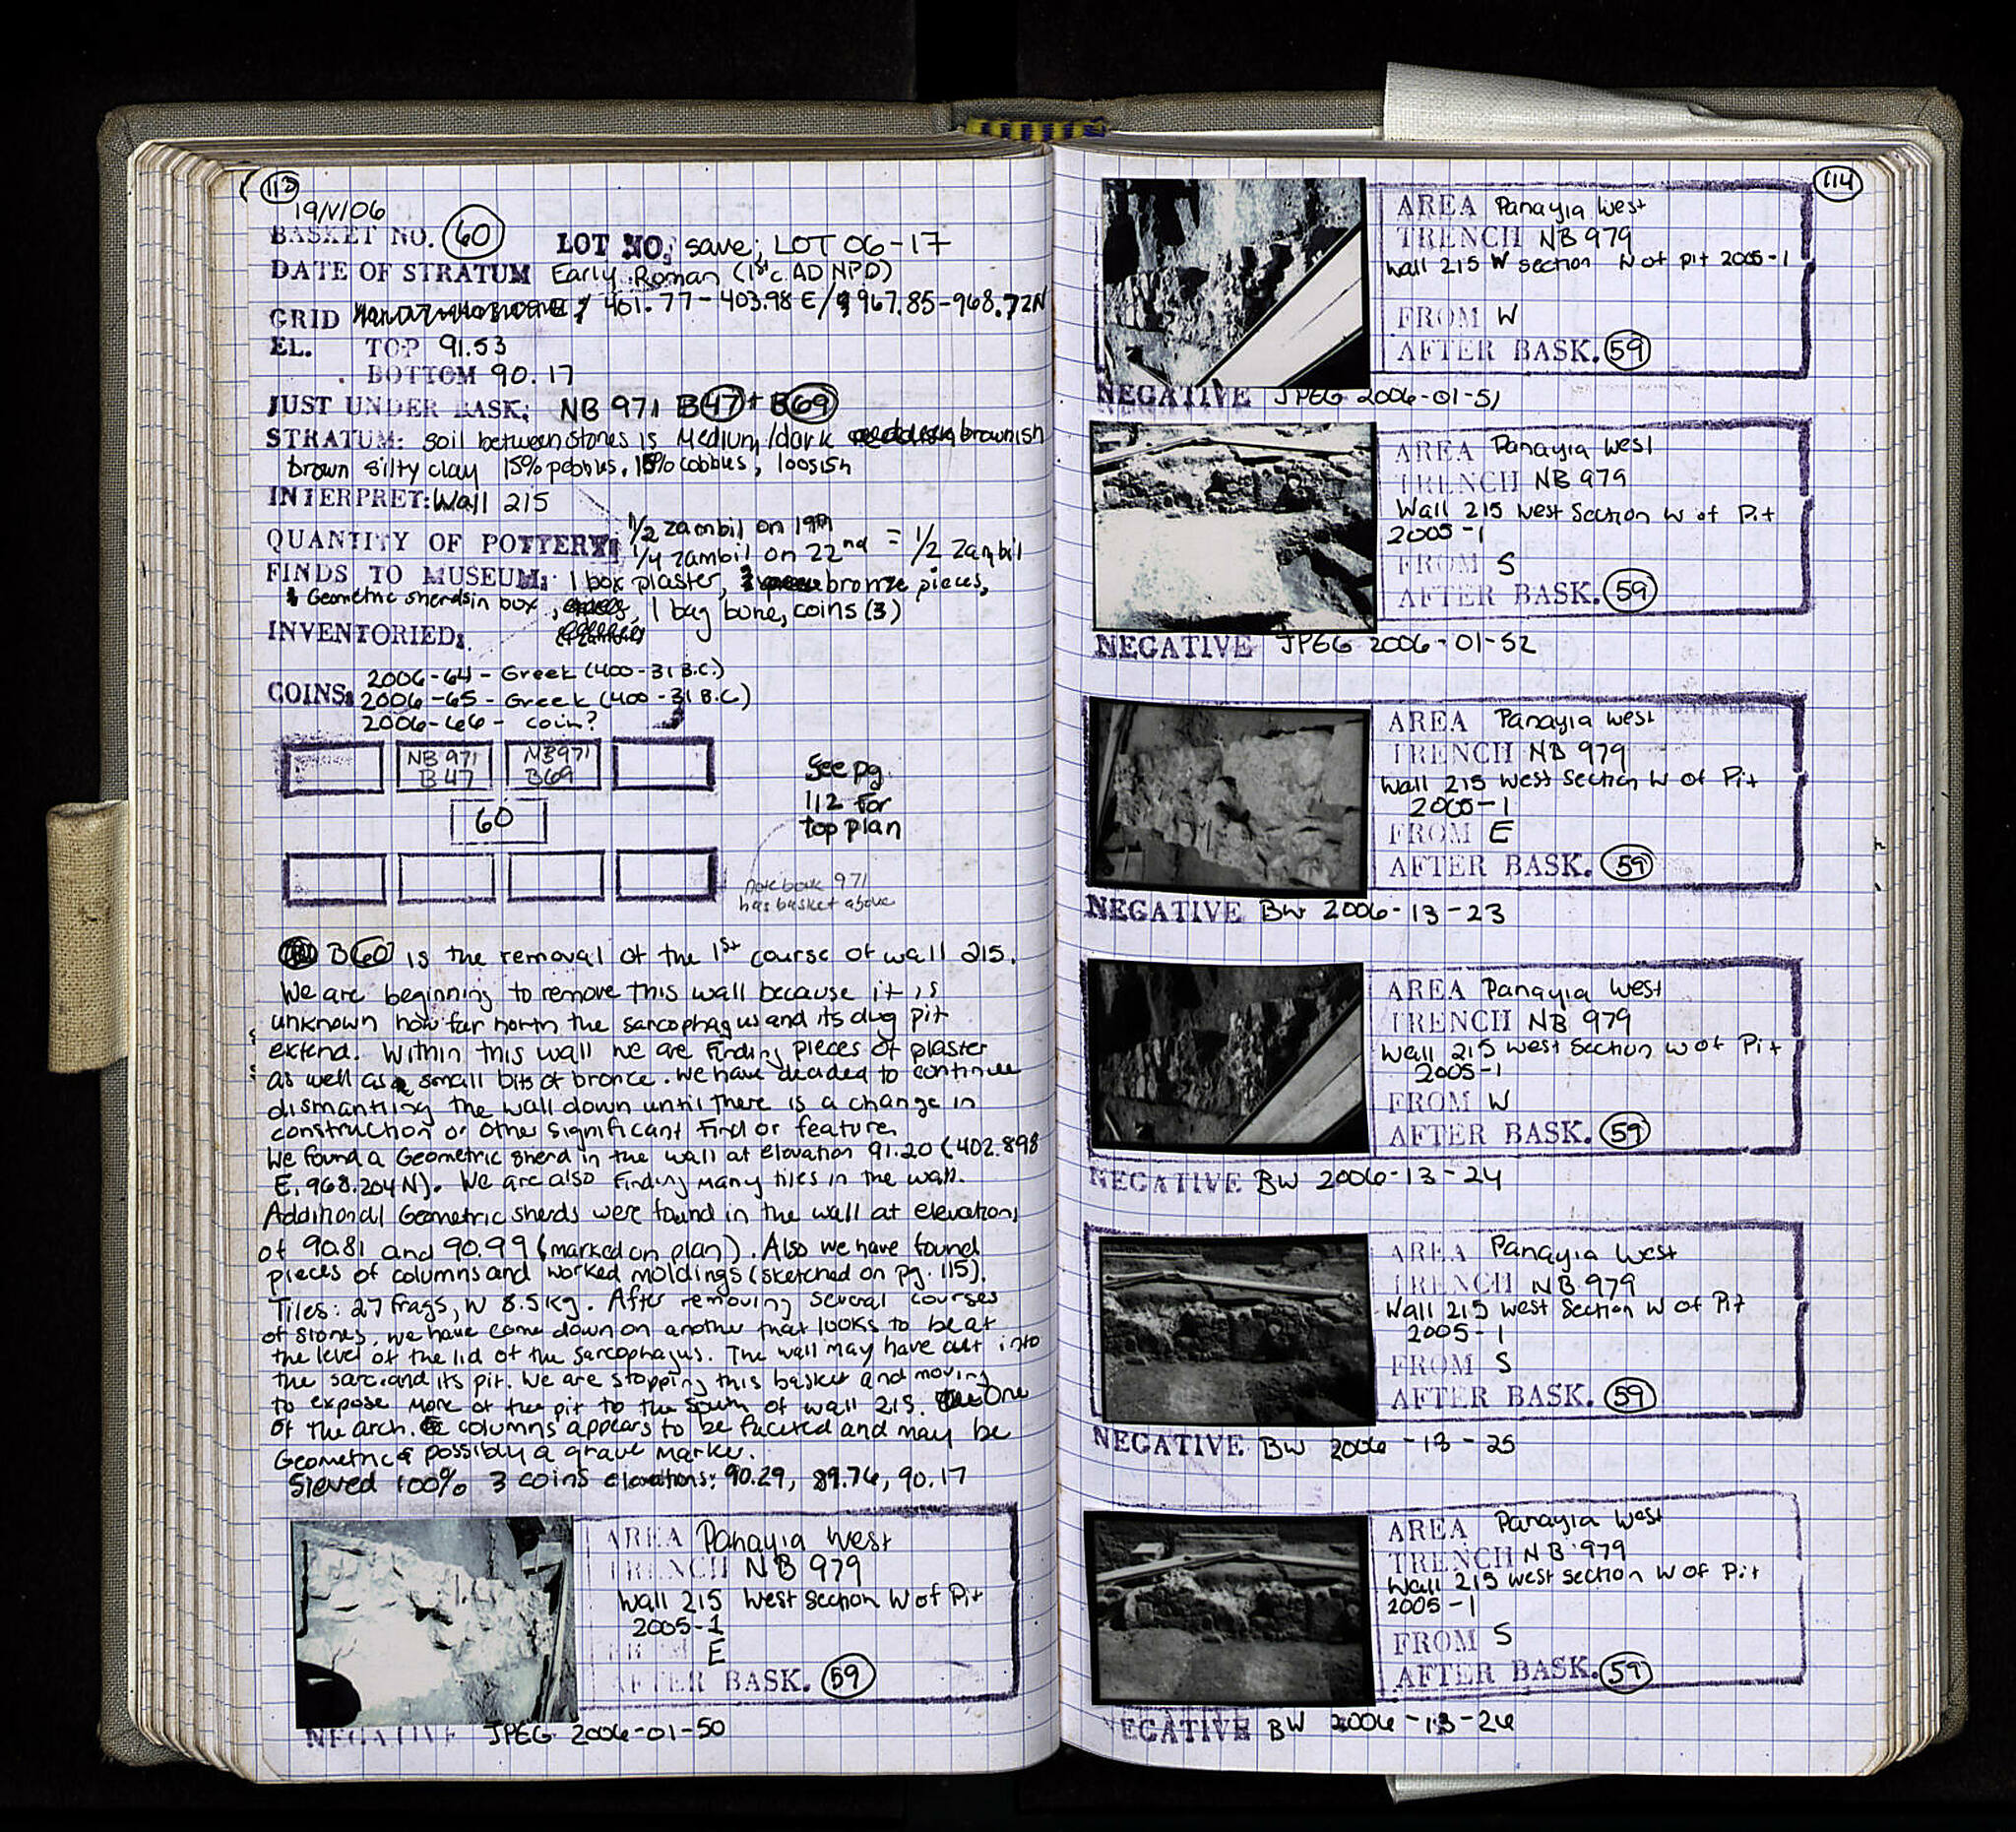 113
19/V/06
BASKET NO. 60 LOT NO. save; LOT 06-17
DATE OF STRATUM Early Roman (1st c. AD NPD)
GRID 401.77-403.98 E/ 967.85-968.72N
EL. TOP 91.53
BOTTOM 90.17
JUST UNDER BASK: NB 971 B47 + B69
STRATUM: soil between stones is medium/dark brownish
brown silty clay 15% pebbles, 15% cobbles, loosish
INTERPRET: Wall 215
QUANTITY OF POTTERY: 1/2 zambil on 19th
1/4 zambil on 22nd = 1/2 zambil
FINDS TO MUSEUM: 1 box plaster, bronze pieces,
Geometric sherds in box, 1 bag bone, coins (3)
INVENTORIED:
2006-64 - Greek (400-31 B.C.)
COINS: 2006-65 - Greek (400-31 B.C.)
2006-66 - coin?
NB 971 B47
NB971 B69
60
See pg.
112 for
top plan
Notebook 971
has basket above
B60 is the removal of the 1st course of wall 215.
We are beginning to remove this wall because it is
unknown how far north the sarcophagus and its dug pit
extend. Within this wall we are finding pieces of plaster
as well as small bits of bronze. We have decided to continue
dismantling the wall down until there is a change in
construction or other significant find or feature.
We found a Geometric sherd in the wall at elevation 91.20 (402.898
E, 968.204N). We are also finding many tiles in the wall.
Additional Geometric sherds were found in the wall at elevations
of 90.81 and 90.99 (marked on plan). Also we have found
pieces of columns and worked moldings (sketched on pg. 115).
Tiles: 27 frags, W 8.5kg. After removing several courses
of stones, we have come down on another that looks to be at
the level of the lid of the sarcophagus. The wall may have cut into
the sarc. and its pit. We are stopping this basket and moving
to expose more of the pit to the south of wall 215. One
of the arch. columns appears to be faceted and may be
Geometric & possibly a grave marker.
Sieved 100% 3 coins elevations: 90.29, 89.76, 90.17
AREA Panayia West
TRENCH NB 979
Wall 215 West Section W of Pit
2005-1
E
AFTER BASK. 59
NEGATIVE JPEG 2006-01-50
114
AREA Panayia West
TRENCH NB 979
Wall 215 W section W of pit 2005-1
FROM W
AFTER BASK. 59
NEGATIVE JPEG 2006-01-51
AREA Panayia West
TRENCH NB 979
Wall 215 West Section W of Pit
2005-1
FROM S
AFTER BASK. 59
NEGATIVE JPEG 2006-01-52
AREA Panayia West
TRENCH NB 979
Wall 215 West Section W of Pit
2005-1
FROM E
AFTER BASK. 59
NEGATIVE BW 2006-13-23
AREA Panayia West
TRENCH NB 979
Wall 215 West Section W of Pit
2005-1
FROM W
AFTER BASK. 59
NEGATIVE BW 2006-13-24
AREA Panayia West
TRENCH NB 979
Wall 215 West Section W of Pit
2005-1
FROM S
AFTER BASK. 59
NEGATIVE BW 2006-13-25
AREA Panayia West
TRENCH NB 979
Wall 215 West Section W of Pit
2005-1
FROM S
AFTER BASK. 59
NEGATIVE BW 2006-13-26